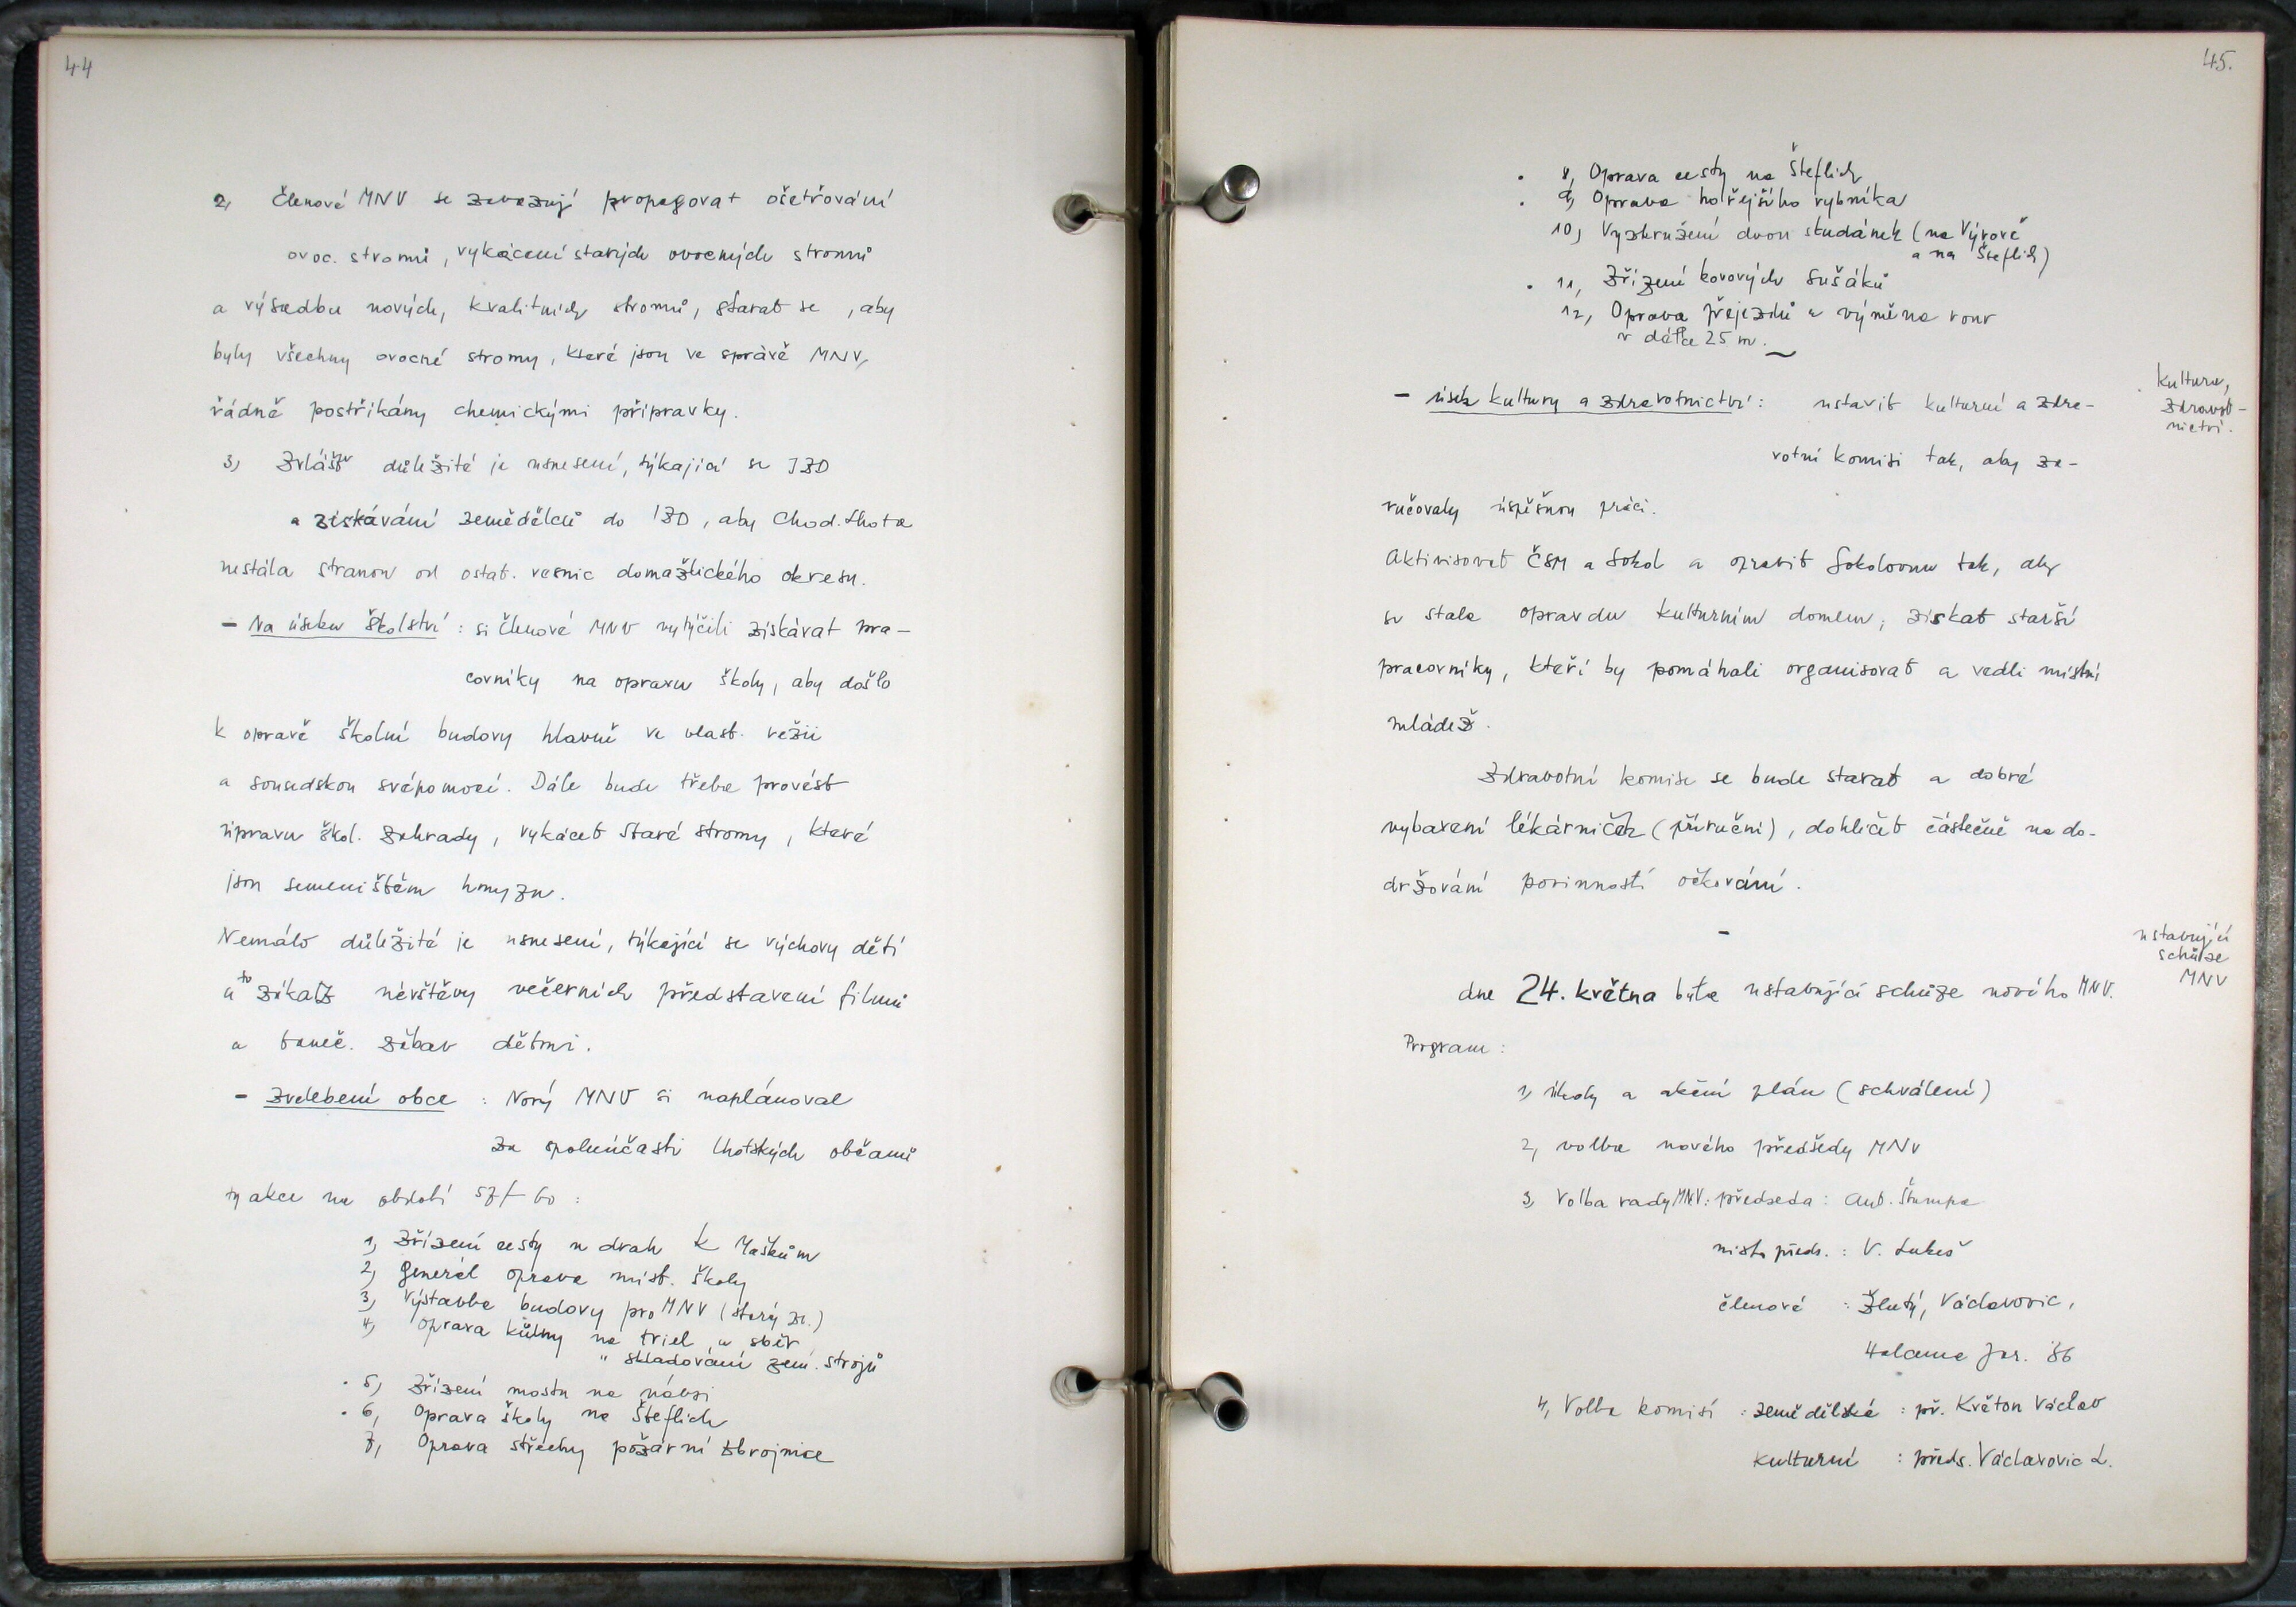 44
2, Členové MNV se zavazují propagovat ošetřování
ovoc. stromů, vykácení starých ovocných stromů
a výsadbu nových, kvalitních stromů, starat se, aby
byly všechny ovocné stromy, které jsou ve správě MNV,
řádně postřikány chemickými přípravky.
3) Zvlášť důležité je usnesení, týkající se JZD
a získávání zemědělců do JZD, aby Chod. Lhota
nestála stranou od ostat. vesnic domažlického okresu.
- Na úseku školství: si členové MNV vytýčili získávat pra-
covníky na opravu školy, aby došlo
k opravě školní budovy hlavně ve vlast. režii
a sousedskou svépomocí. Dále bude třeba provést
úpravu škol. zahrady, vykácet staré stromy, které
jsou semeništěm hmyzu.
Nemálo důležité je usnesení, týkející se výchovy dětí
a to zákaz návštěvy večerních představení filmů
a taneč. zábav dětmi.
- Zvelebení obce: Nový MNV si naplánoval
za spoluúčasti lhotských občanů
ty akce na období 57-60:
1, Zřízení cesty u drah k Maškům
2) generál oprava míst. školy
3, Výstavba budovy pro MNV (starý )
4, Oprava kůlny na triel a sběr
" skladování zem. strojů
. 5) Zřízení mostu na návsi
. 6, Oprava školy na Šteflich
7, Oprava střechy požární zbrojnice
45.
. 8, Oprava cesty na Šteflich
. 9, Oprava hořejšího rybníka
10) Vyskružení dvou studánek (na Výrově
a na Šteflich)
. 11, Zřízení kovových sušáků
12, Oprava přejezdů a výměna rour
v délce 25 m.
- úsek kultury a zdravotnictví: ustavit kulturní a zdra-
votní komisi tak, aby za-
ručovaly úspěšnou práci.
kultura,
zdravot-
nictví.
Aktivisovat ČSM a Sokol a opravit Sokolovnu tak, aby
se stala opravdu kulturním domem; získat starší
pracovníky, kteří by pomáhali organisovat a vedli místní
mládež.
Zdravotní komise se bude starat a dobré
vybavení lékárniček (příruční), dohlížet částečně na do-
držování povinností očkování.
-
ustavující
schůze
MNV
dne 24. května byla ustavující schůze nového MNV.
Program:
1, úkoly a akční plán (schválení)
2, volba nového předsedy MNV
3, Volba rady MNV: předseda: Ant. Štumpa
místopředs.: V. Lukeš
členové: Žlutý, Václavovic,
Halama Jar. 86
4, Volba komisí: zemědělské: př. Květon Václav
kulturní: předs. Václavovic L.